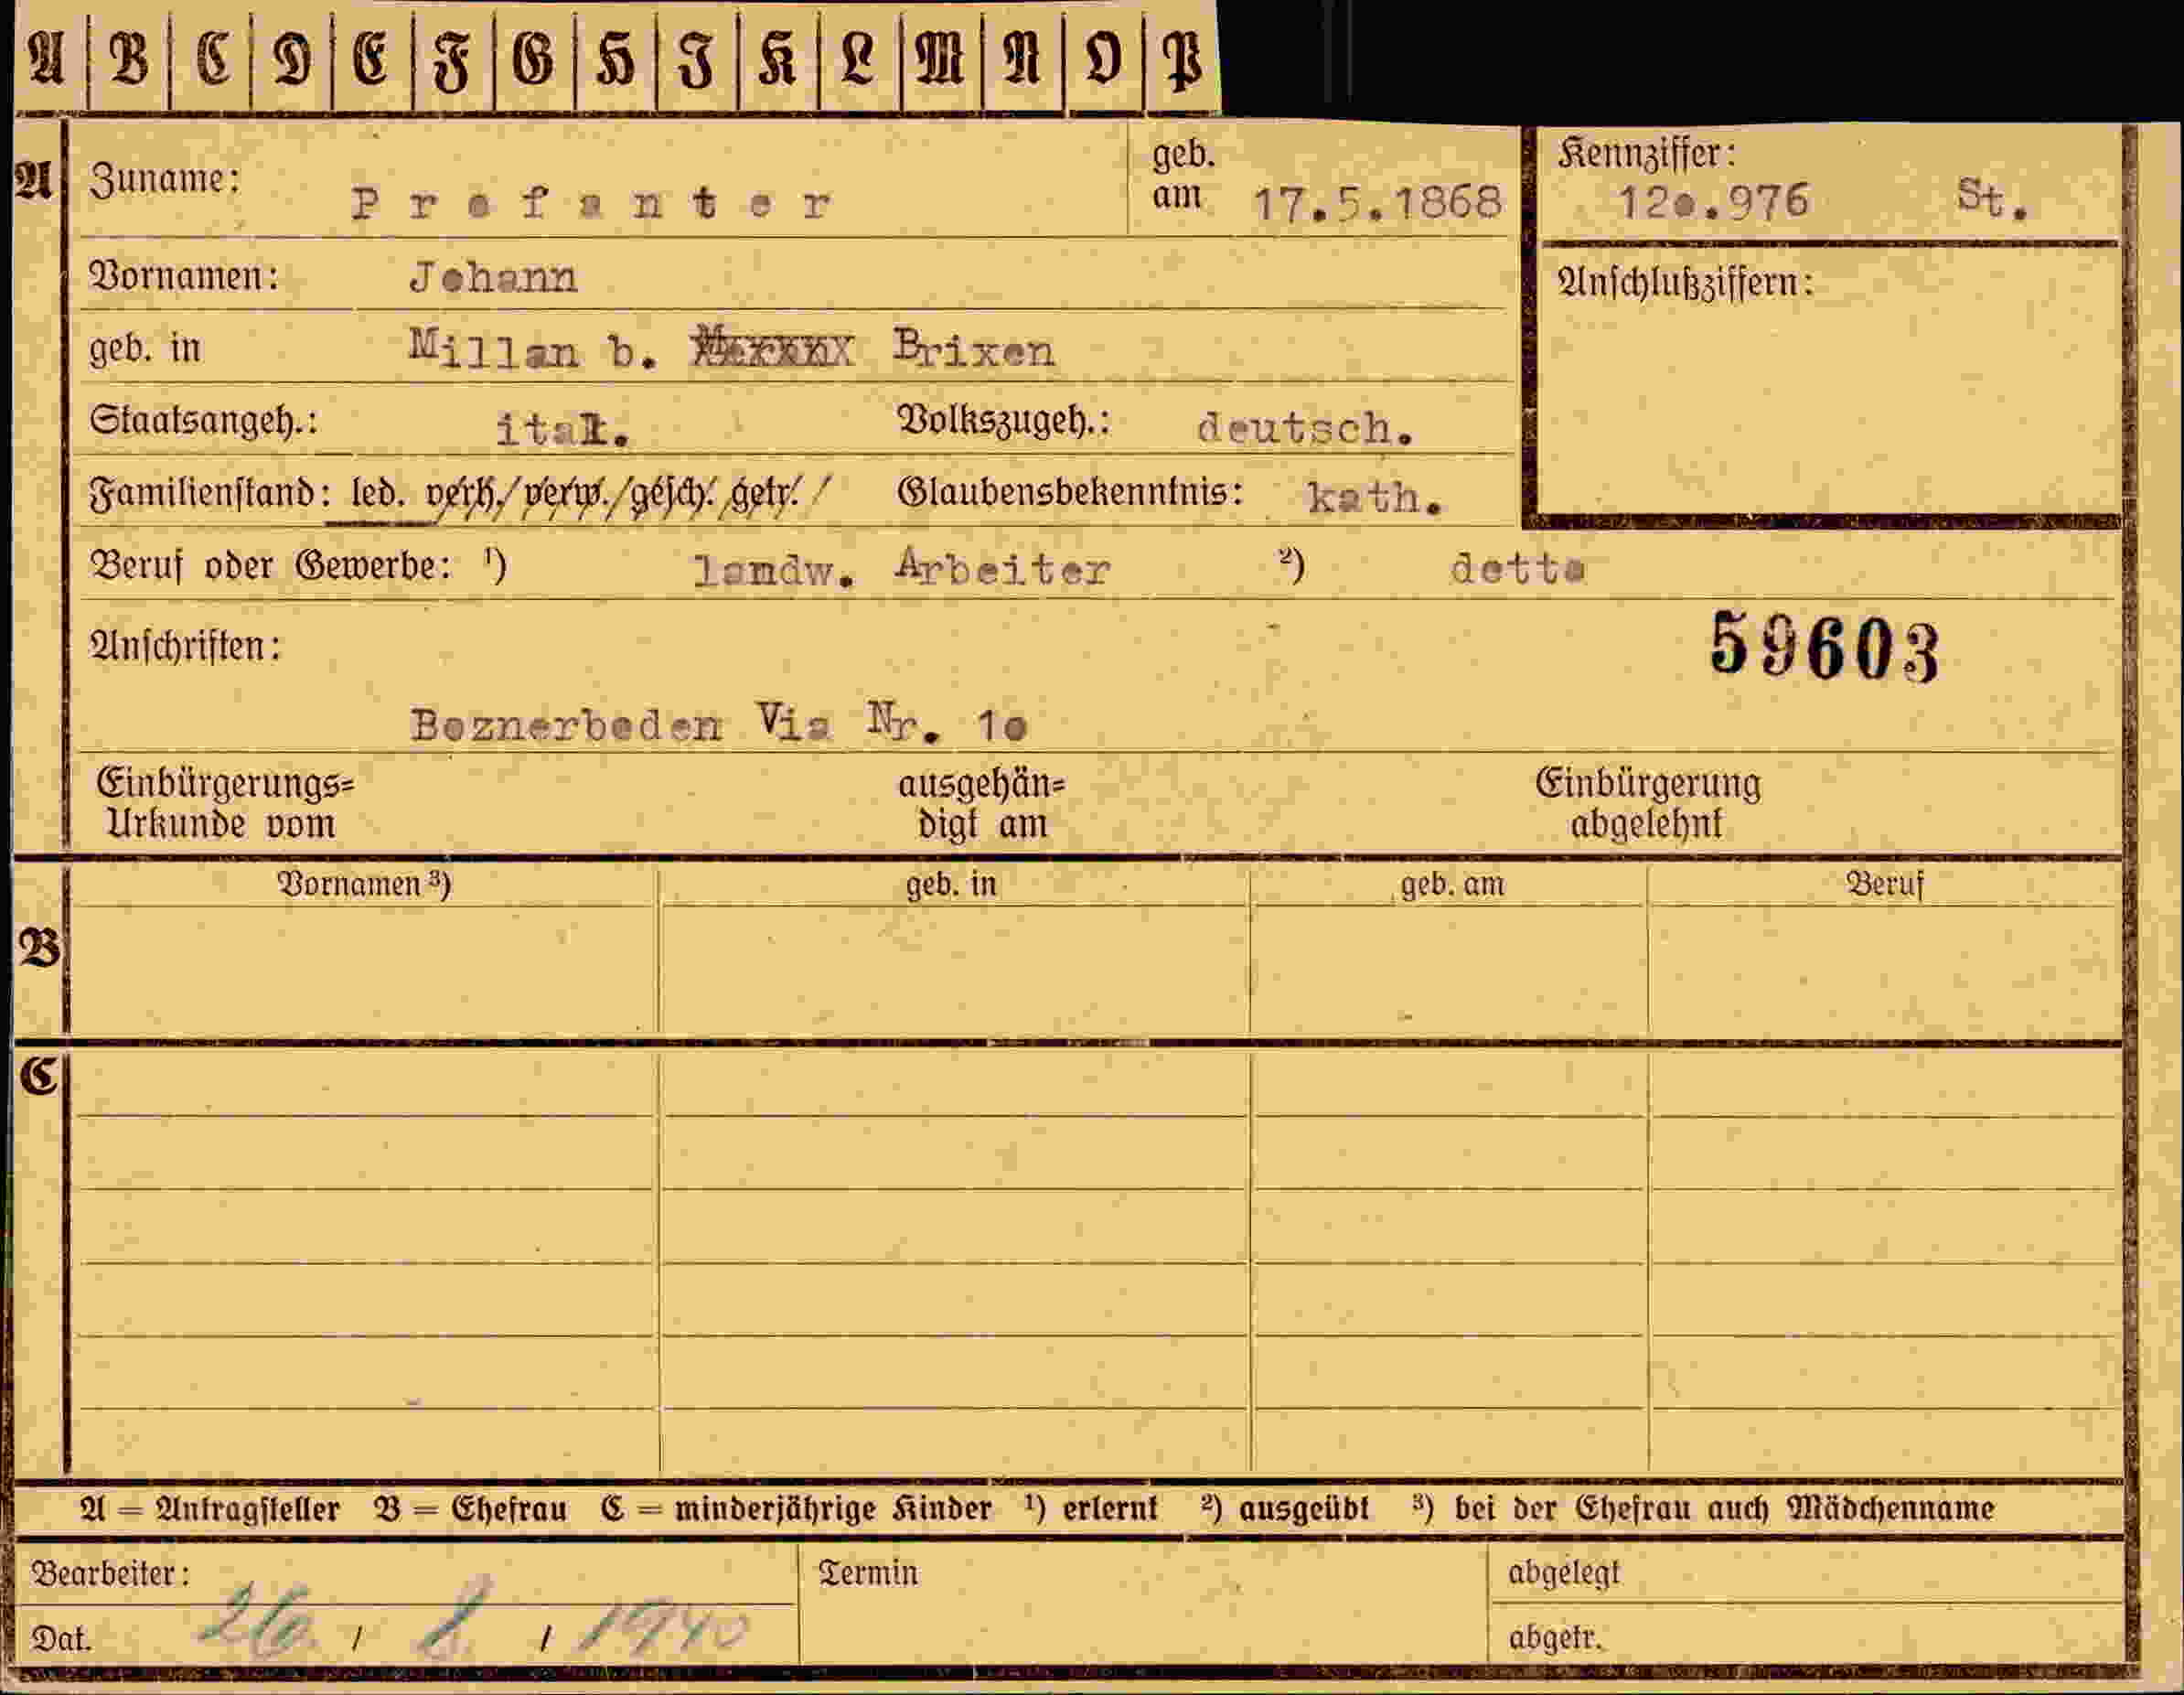 A B C D E F G H I K L M N O P
A Zuname: Profanter geb. am 17.5.1868 Kennziffer: 12o.976 St.
Vornamen: Johann Anschlußziffern:
geb. in Millan b. Brixen
Staatsangeh.: ital. Volkszugeh.: deutsch.
Familienstand: led. verh./verw./gesch. getr. / Glaubensbekenntnis: kath.
Beruf oder Gewerbe: ¹) landw. Arbeiter ²) detto
Anschriften: 59603
Boznerboden Via Nr. 1o
Einbürgerungs= ausgehän= Einbürgerung
Urkunde vom digt am abgelehnt
Vornamen ³) geb. in geb. am Beruf
B
C
A = Antragsteller B = Ehefrau C = minderjährige Kinder ¹) erlernt ²) ausgeübt ³) bei der Ehefrau auch Mädchenname
Bearbeiter: Termin abgelegt
Dat. 26. / 8. / 1940 abgetr.